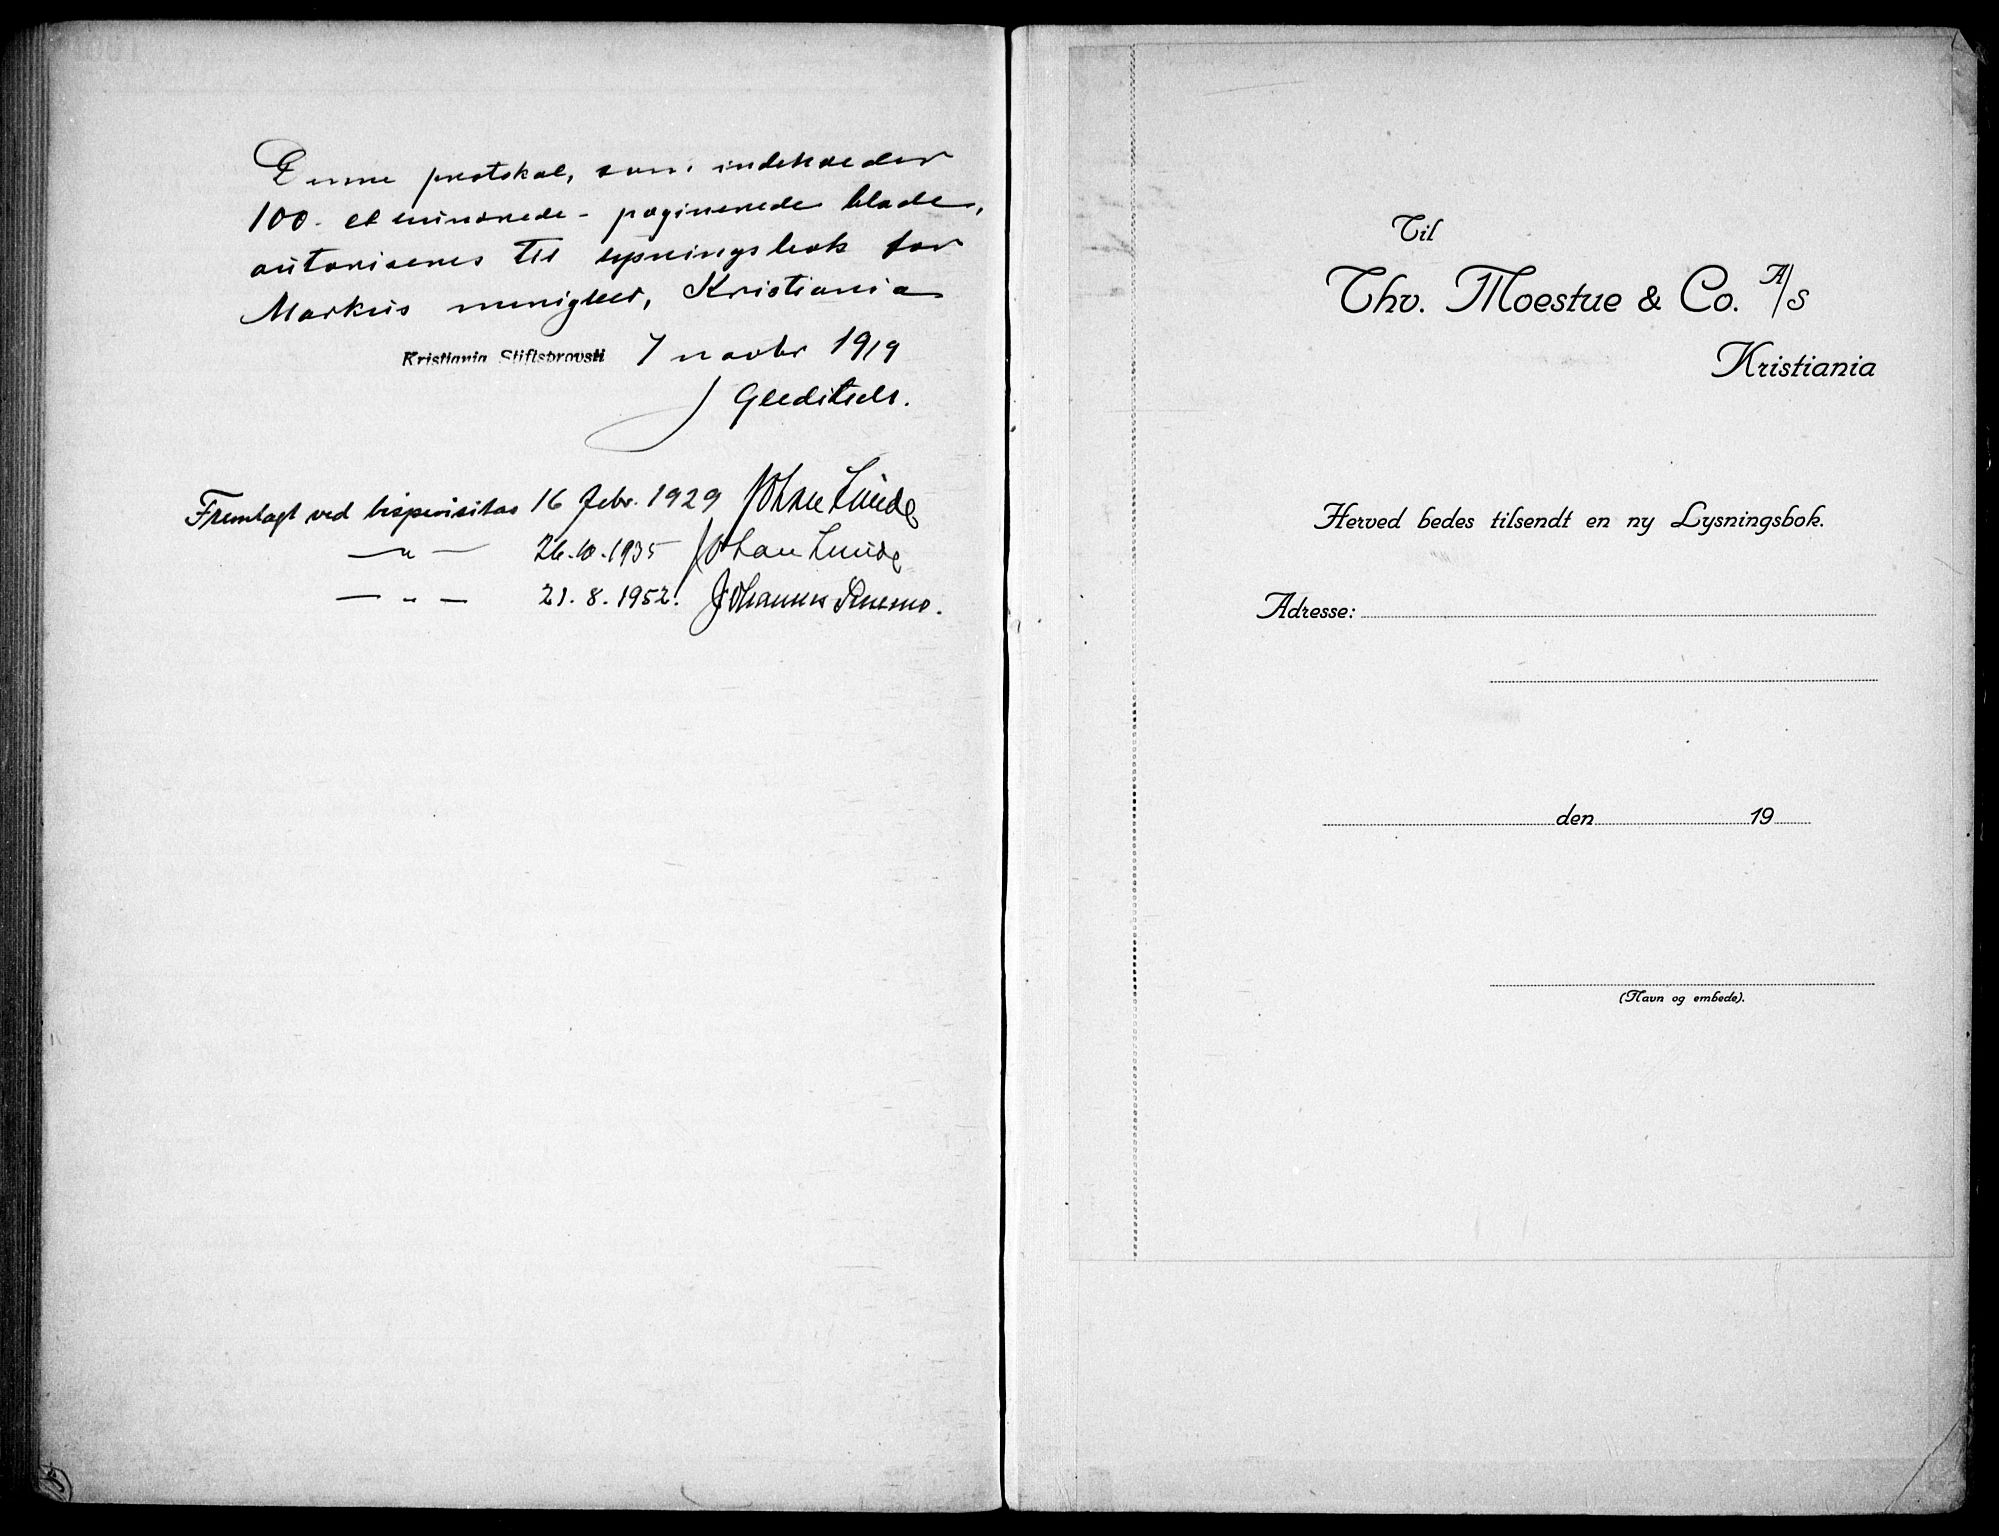 Denne protokol, som indeholder
100 - et hundrede - paginerede blade,
autoriseres til lysningsbok for
Markus menighet, Kristiania
Kristiania Stiftsprovsti 7 novbr 1919
J Gleditsch.
Fremlagt ved bispevisitas 16 febr. 1929 Johan Lunde
— " — 26.10.1935 Johan Lunde
— " — 21.8.1952. Johannes Smemo.
Til
Thv. Moestue & Co. A/S
Kristiania
Herved bedes tilsendt en ny Lysningsbok.
Adresse:
den 19
(Navn og embede).